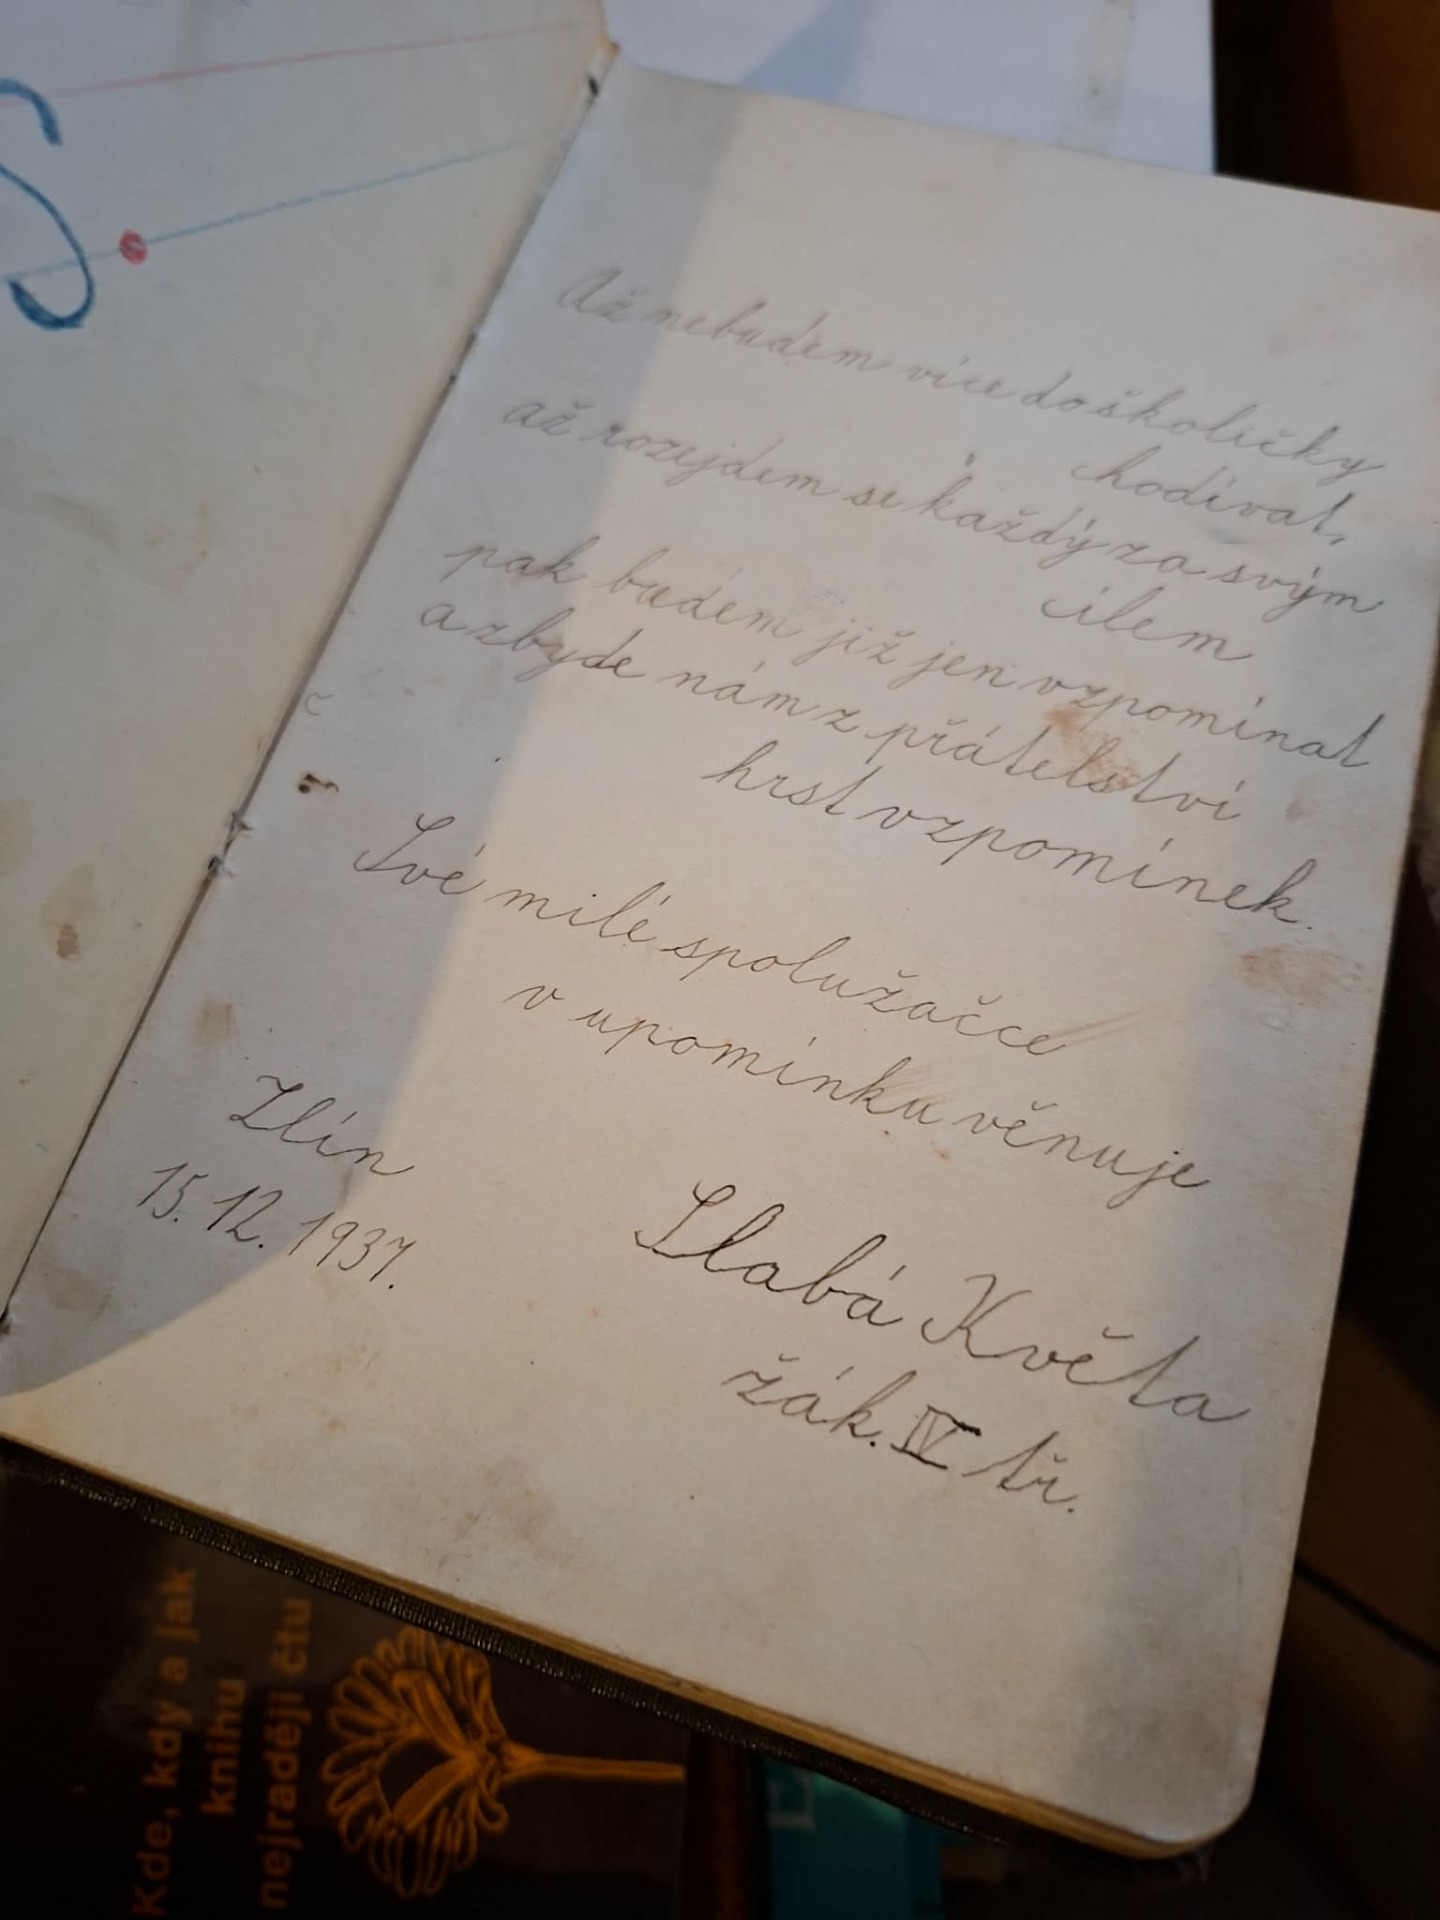 S.
Až nebudem více do školičky
chodívat,
až rozejdem se každý za svým
cílem
pak budem již jen vzpomínat
a zbyde nám z přátelství
hrst vzpomínek.
Své milé spolužačce
v upomínku věnuje
Zlín
15. 12. 1937.
Slabá Květa
žák. IV tř.
Kde, kdy a jak
knihu
nejraději čtu